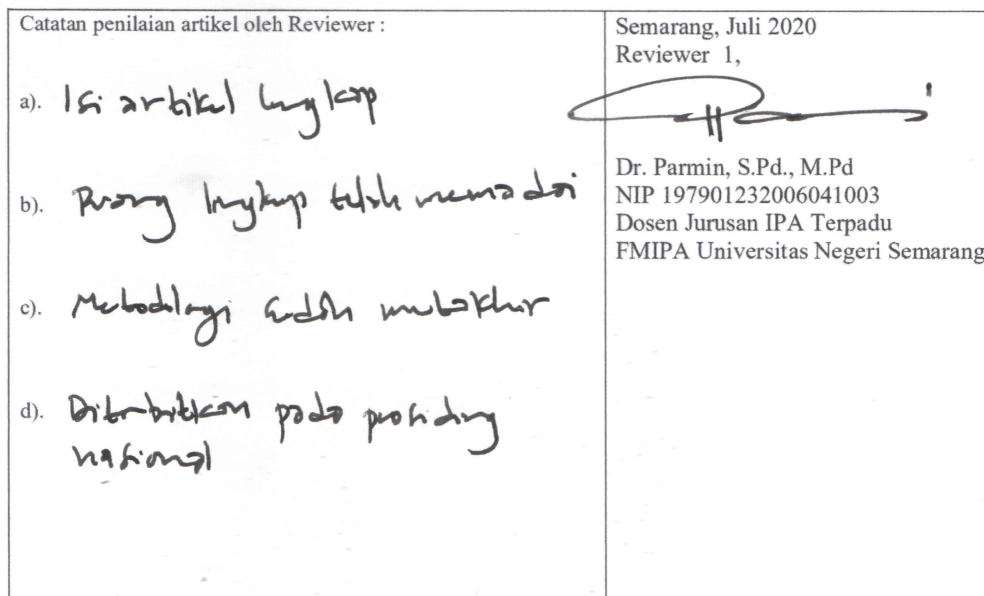 Catatan penilaian artikel oleh Reviewer :
a). Isi artikel lengkap
b). Ruang lingkup telah memadai
c). Metodologi sudah mutakhir
d). Diterbitkan pada prosiding
nasional
Semarang, Juli 2020
Reviewer 1,
Dr. Parmin, S.Pd., M.Pd
NIP 197901232006041003
Dosen Jurusan IPA Terpadu
FMIPA Universitas Negeri Semarang